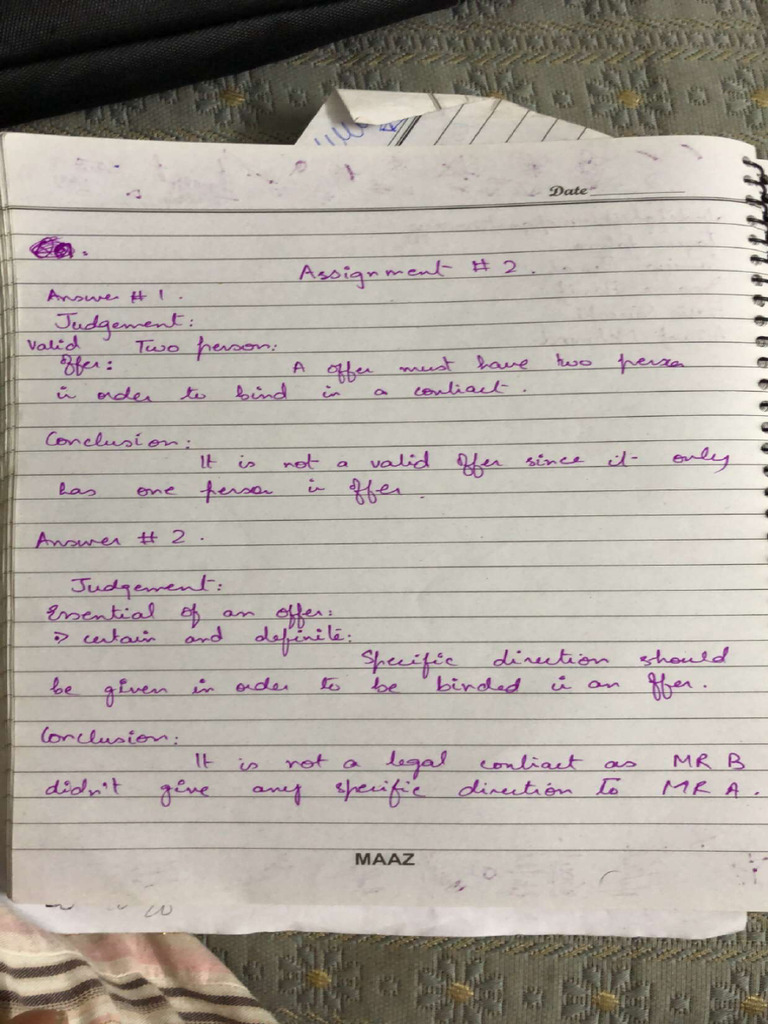 Date
Assignment # 2.
Answer # 1.
Judgement:
Valid Two person:
offer: A offer must have two person
in order to bind in a contract.
Conclusion:
It is not a valid offer since it only
has one person in offer.
Answer # 2.
Judgement:
Essential of an offer:
certain and definite:
Specific direction should
be given in order to be binded in an offer.
Conclusion:
It is not a legal contract as MR B
didn't give any specific direction to MR A.
MAAZ